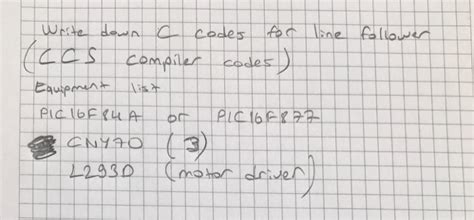 Write down C codes for line follower
(CCS compiler codes)
Equipment list
PIC16F84A or PIC16F877
CNY70 (3)
L293D (motor driver)